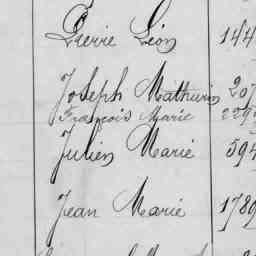 Pierre Léon 144
Joseph Mathurin 207
François Marie 229
Julien Marie 594
Jean Marie 1789